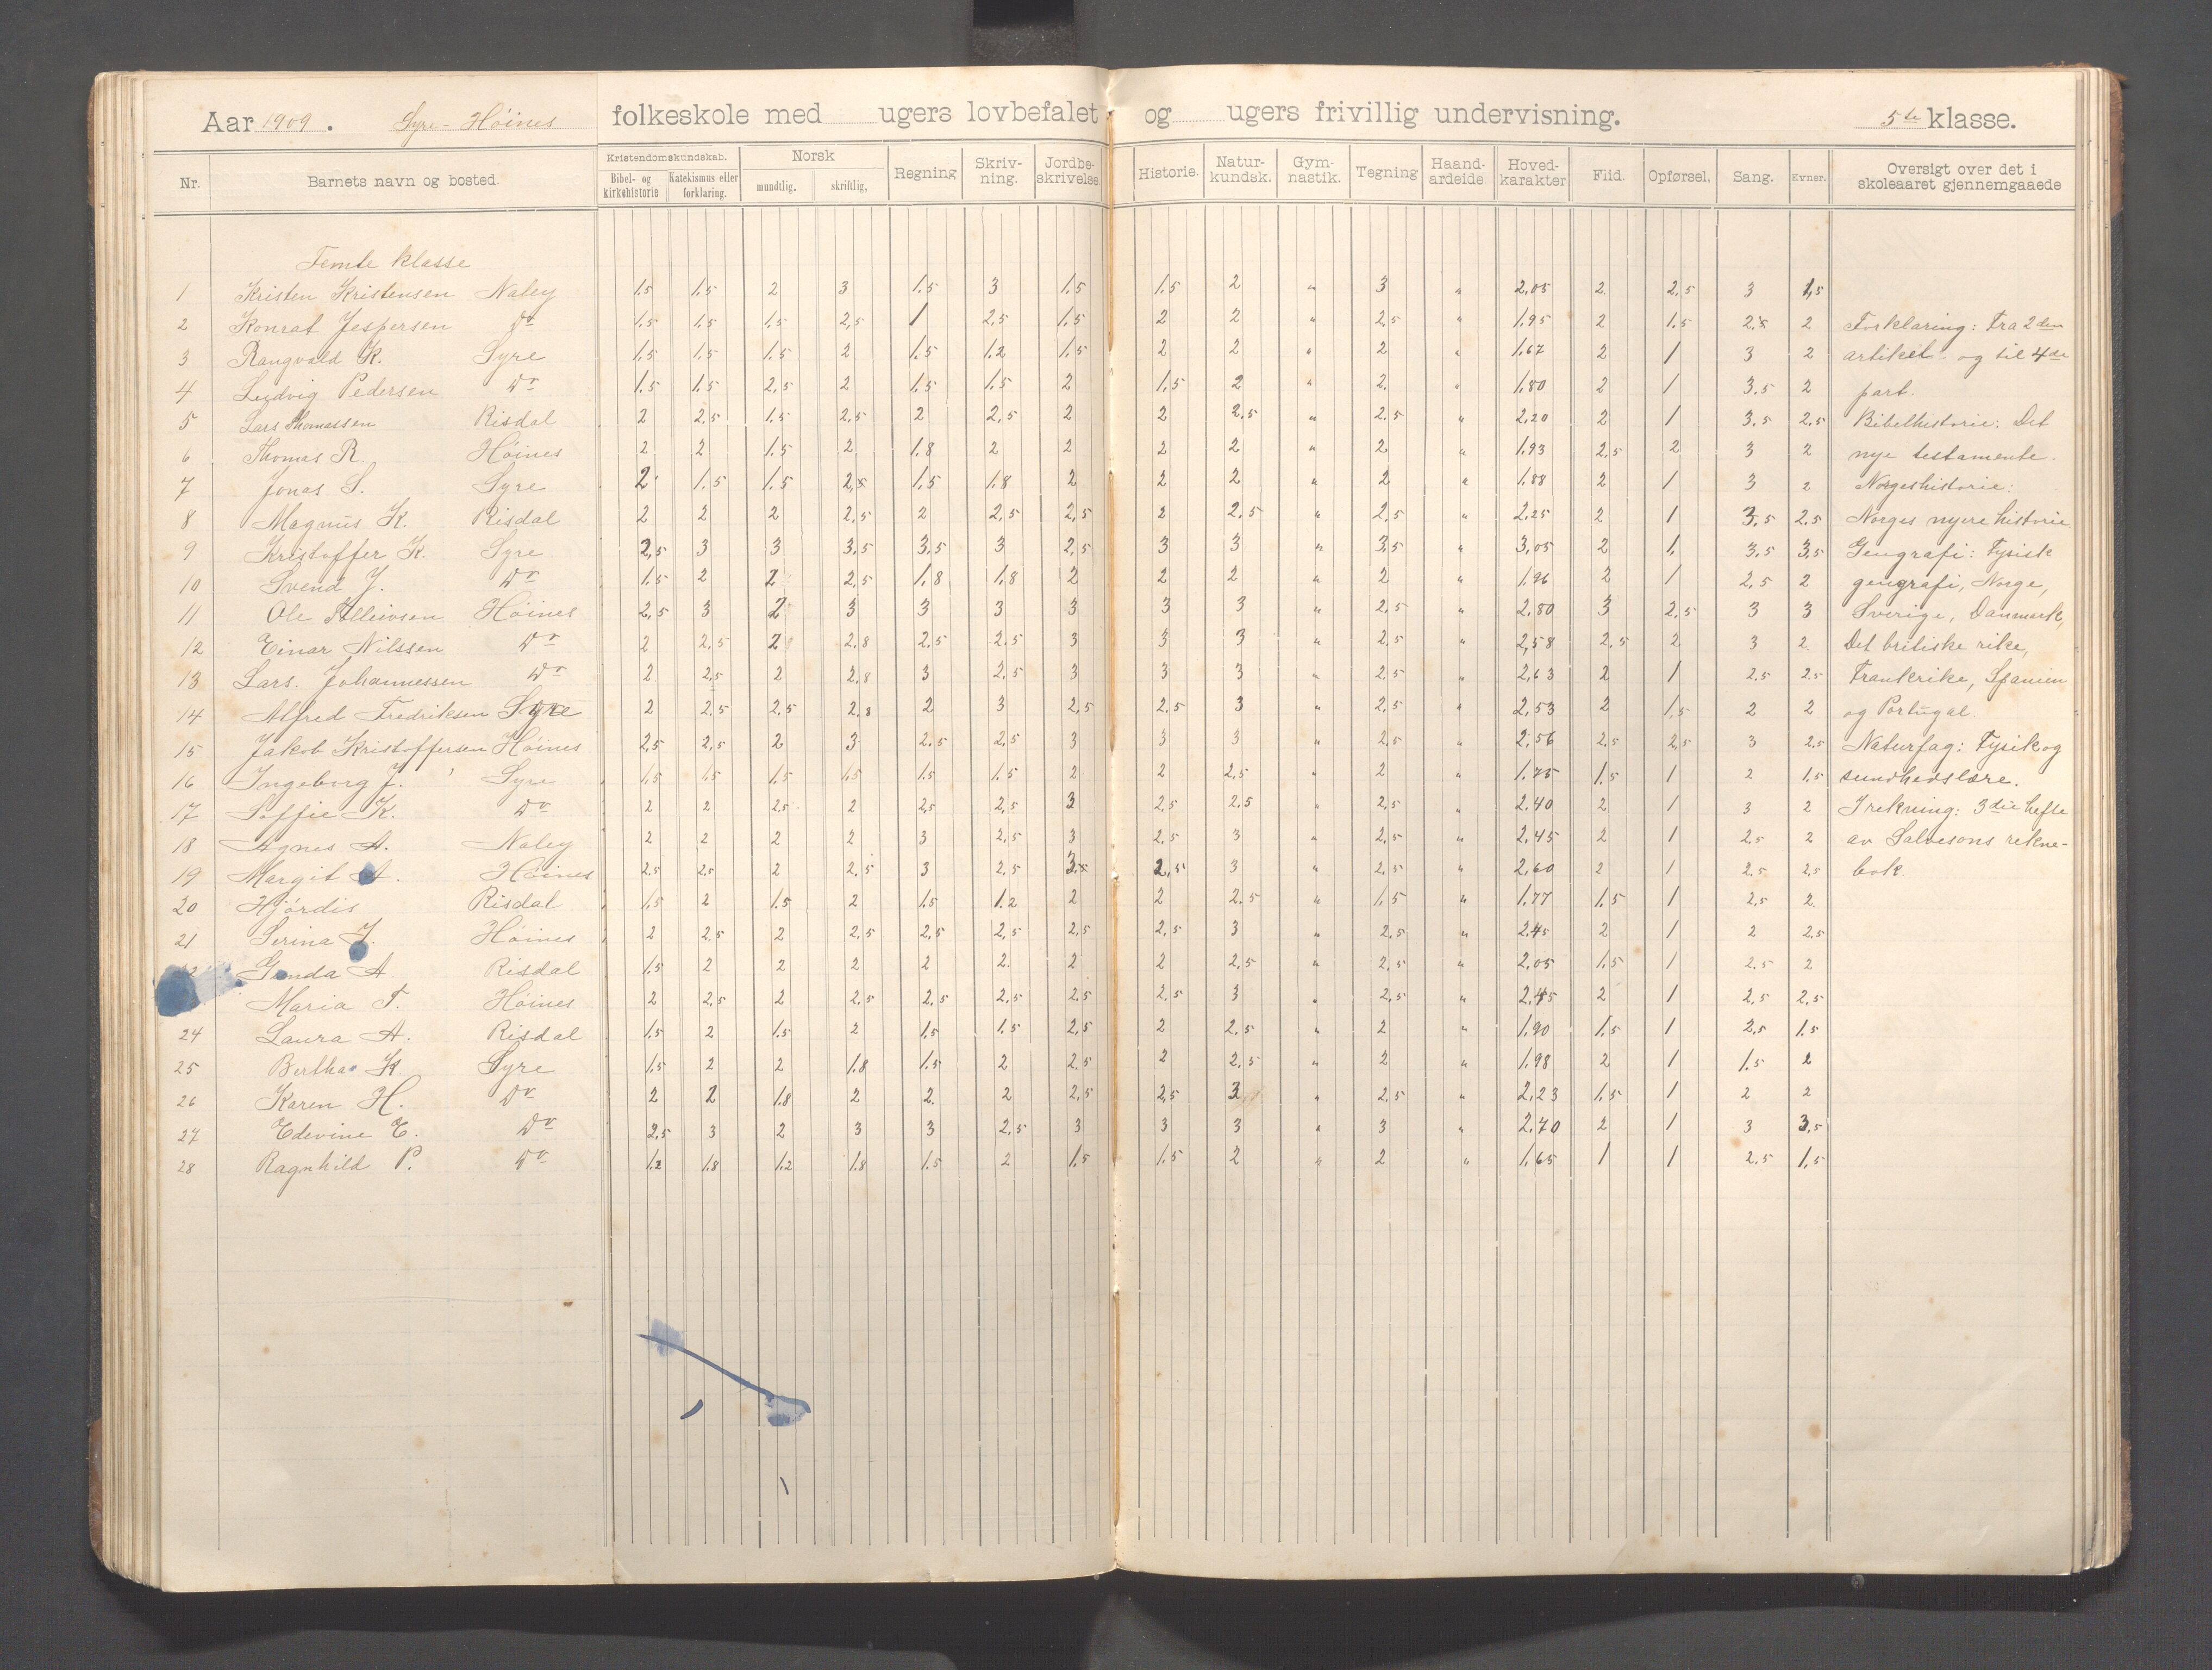 Aar 1909. Syre- Höines folkeskole med ugers lovbefalet og ugers frivillig undervisning. 5te klasse.
Nr. Barnets navn og bosted. Kristendomskundskab. Bibel- og kirkehistorie Katekismus eller forklaring. Norsk mundtlig. skriftlig. Regning Skriv-ning. Jordbe-skrivelse Historie. Natur-kundsk. Gym-nastik. Tegning Haand-arbeide. Hoved-karakter Flid. Opførsel. Sang. Evner. Oversigt over det i skoleaaret gjennemgaaede
Femte klasse
1 Kristen Kristensen Naley 1.5 1.5 2 3 1.5 3 1.5 1.5 2 " 3 " 2,05 2 2,5 3 1,5
2 Konrat Jespersen Do 1.5 1.5 1.5 2,5 1 2,5 1.5 2 2 " 2,5 " 1,95 2 1.5 2,5 2 Forklaring: Fra 2den
3 Rangvald K. Syre 1.5 1.5 1.5 2 1.5 1.2 1.5 2 2 " 2 " 1,67 2 1 3 2 artikel og til 4de
4 Ludvig Pedersen Do 1.5 1.5 2,5 2 1.5 1.5 2 1,5 2 " 2. " 1,80 2 1 3,5 2 part.
5 Lars Thomassen Risdal 2 2,5 1.5 2,5 2 2,5 2 2 2,5 " 2,5 " 2,20 2 1 3,5 2,5 Bibelhistorie: Det
6 Thomas R. Höines 2 2 1.5 2 1.8 2 2 2 2 " 2 " 1,93 2,5 2 3 2 nye testamente.
7 Jonas S. Syre 2 1.5 1.5 2,5 1.5 1.8 2 2 2 " 2 " 1,88 2 1 3 2 Norgeshistorie:
8 Magnus K. Risdal 2 2 2 2,5 2 2,5 2,5 2 2,5 " 2,5 " 2,25 2 1 3,5 2,5 Norges nyere historie
9 Kristoffer K. Syre 2,5 3 3 3,5 3,5 3 2,5 3 3 " 3,5 " 3,05 2 1. 3,5 3,5 Geografi: Fysisk
10 Svend J. Do 1.5 2 2 2,5 1,8 1,8 2 2 2 " 2 " 1,96 2 1 2,5 2 geografi, Norge,
11 Ole Høines 2,5 3 2 3 3 3 3 3 3 " 2,5 " 2,80 3 2,5 3 3 Sverige, Danmark,
12 Einar Nilssen Do 2 2,5 2 2,8 2,5 2,5 3 3 3 " 2,5 " 2,58 2,5 2 3 2. Det britiske rike,
13 Lars. Johannessen Do 2 2,5 2 2,8 3 2,5 3 3 3 " 2,5 " 2,63 2 1 2,5 2,5 Frankrike, Spanien
14 Alfred Fredriksen Syre 2 2,5 2,5 2,8 2 3 2,5 2,5 3 " 2,5 " 2,53 2 1,5 2 2 og Portugal.
15 Jakob Kristoffersen Höines 2,5 2,5 2 3 2,5 2,5 3 3 3 " 2,5 " 2,56 2,5 2,5 3 2,5 Naturfag: Fysik og
16 Ingeborg J. Syre 1,5 1,5 1.5 1,5 1.5 1.5 2 2 2,5 " 2 " 1,75 1.5 1 2 1,5 sundhedslære.
17 Soffie K. Do 2 2 2,5 2 2,5 2,5 3 2,5 2,5 " 2,5 " 2,40 2 1 3 2 I rekning: 3die hefte
18 Agnes A. Naley 2 2 2 2 3 2,5 3 2,5 3 " 2,5 " 2,45 2 1 2,5 2 av Salvesons rekne-
19 Margit A. Höines 2,5 2,5 2 2,5 3 2,5 3,5 2,5 3 " 2,5 " 2,60 2 1 2,5 2,5 bok.
20 Hjördis Risdal 1,5 2 1.5 2 1.5 1.2 2 2 2,5 " 1,5 " 1,77 1.5 1 2,5 2.
21 Serina J. Höines 2 2,5 2 2,5 2,5 2,5 2,5 2,5 3 " 2,5 " 2,45 2 1 2 2,5
Gunda A. Risdal 1,5 2 2 2 2 2. 2 2 2,5 " 2,5 " 2,05 1,5 1 2,5 2
Maria T. Höines 2 2,5 2 2,5 2,5 2,5 2,5 2,5 3 " 2,5 " 2,45 2 1 2,5 2,5
24 Laura A. Risdal 1,5 2 1.5 2 1.5 1.5 2,5 2 2,5 " 2 " 1,90 1.5 1 2,5 1.5
25 Bertha K. Syre 1,5 2 2 1.8 1.5 2 2,5 2 2,5 " 2 " 1,98 2 1 1.5 2
26 Karen H. Do 2 2 1.8 2 2. 2 2,5 2,5 3 " 2,5 " 2,23 1,5 1 2 2
27 Edevine E. Do 2,5 3 2 3 3 2,5 3 3 3 " 3 " 2,70 2 1 3 3,5
28 Ragnhild P. Do 1.2 1.8 1.2 1.8 1.5 2 1,5 1,5 2 " 2 " 1,65 1 1 2,5 1,5